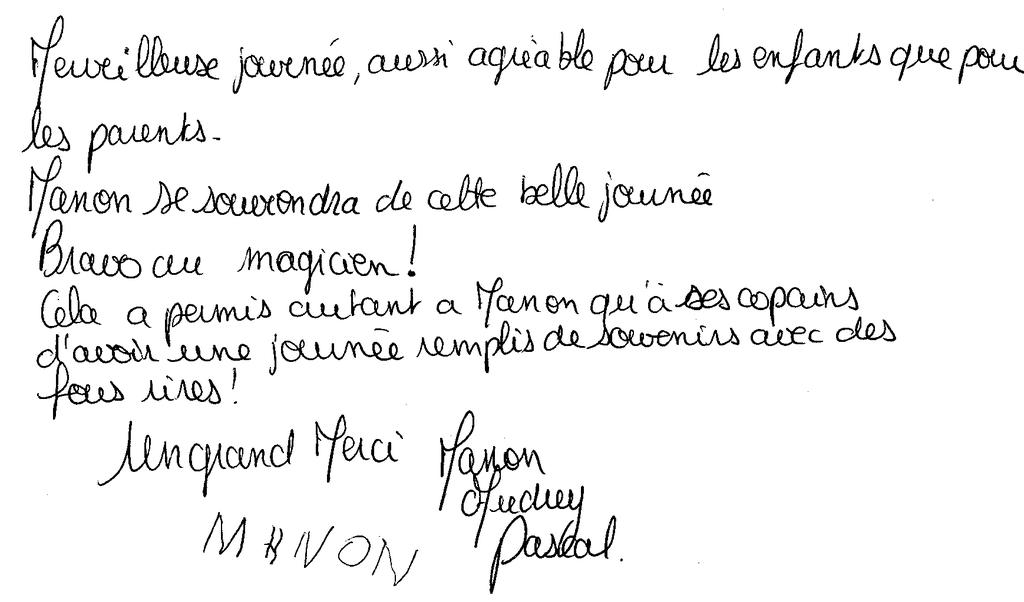 Merveilleuse journée, aussi agréable pour les enfants que pour
les parents.
Manon se souvendra de cette belle journée
Bravo au magicien !
Cela a permis autant a Manon qu'à ses copains
d'avoir une journée remplis de souvenirs avec des
fous rires !
Un grand Merci Manon
Audrey
Pascal.
MANON